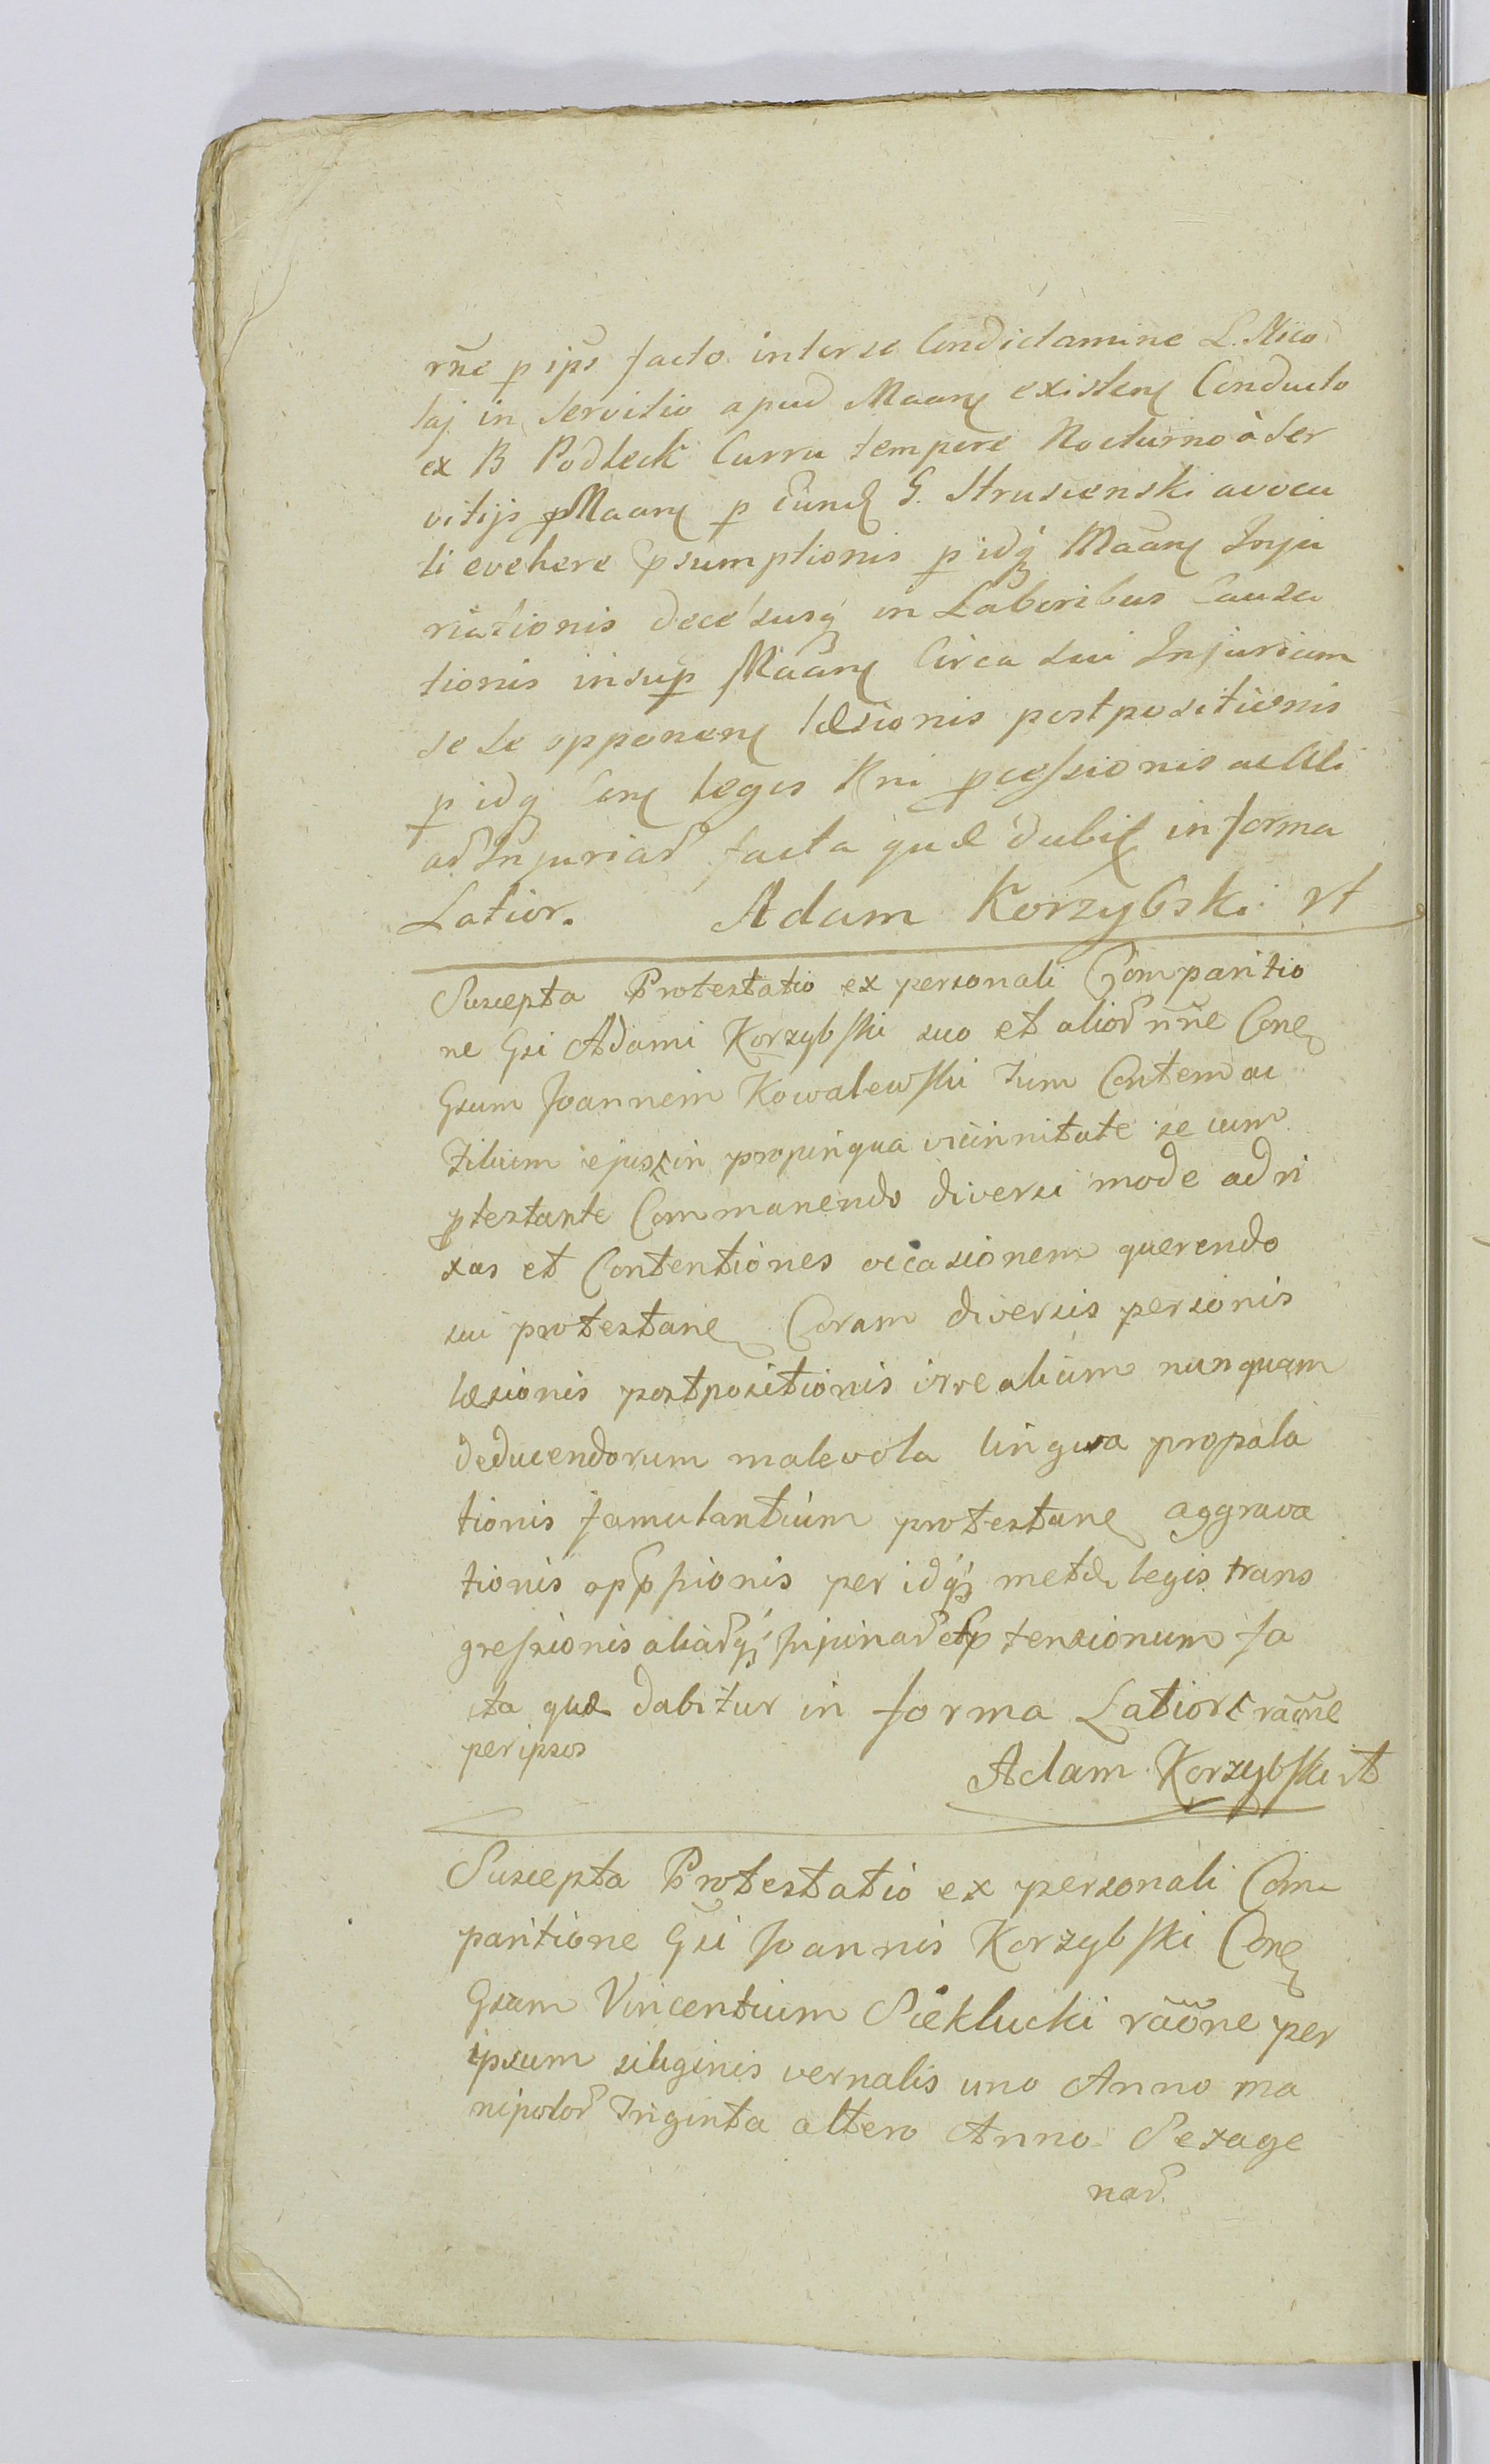 rñe p ips facto inter se Condictamine L. Nico
laj in Servitio apud Maan existen Conducto
ex B Podleck Curru tempore Nocturno à Ser
vitijs pMaan p Eund G. Strusienski avoca
ti evehere psumptionis p idq Maan Inju
riationis dece susq in Laboribus Causa
tionis insup Maan Circa sui Injuriam
se se opponen læsionis postpositionis
p idq legis Rni pcessionis
ad Injuriar facta quæ dabit in forma
Latior. Adam Korzybski
Suscepta Protestatio ex personali Comparitio
ne Gsi Adami Korzybski suo et alior nñe Con
Gsum Joannem Kowalewski tum Contem ac
Filium ejus in propinqua vicinnitate se cum
ptestante Commanendo diversi mode ad ri
xas et Contentiones occasionem querendo
sui protestan Coram diversis personis
læsionis postpositionis irrealium nunquam
deducendorum malevola lingva propala
tionis famulantium protestan aggrava
tionis oppssionis per idq metæ legis trans
gressionis aliarq Injuriar et ptensionum fa
cta quæ dabitur in forma Latiori raõne
per ipsos
Adam Korzybski
Suscepta Protestatio ex personali Com
paritione Gsi Joannis Korzybski Con
Gsum Vincentium Sieklucki raõne per
ipsum siliginis vernalis uno Anno ma
nipolor Triginta altero Anno Sexage
nar.